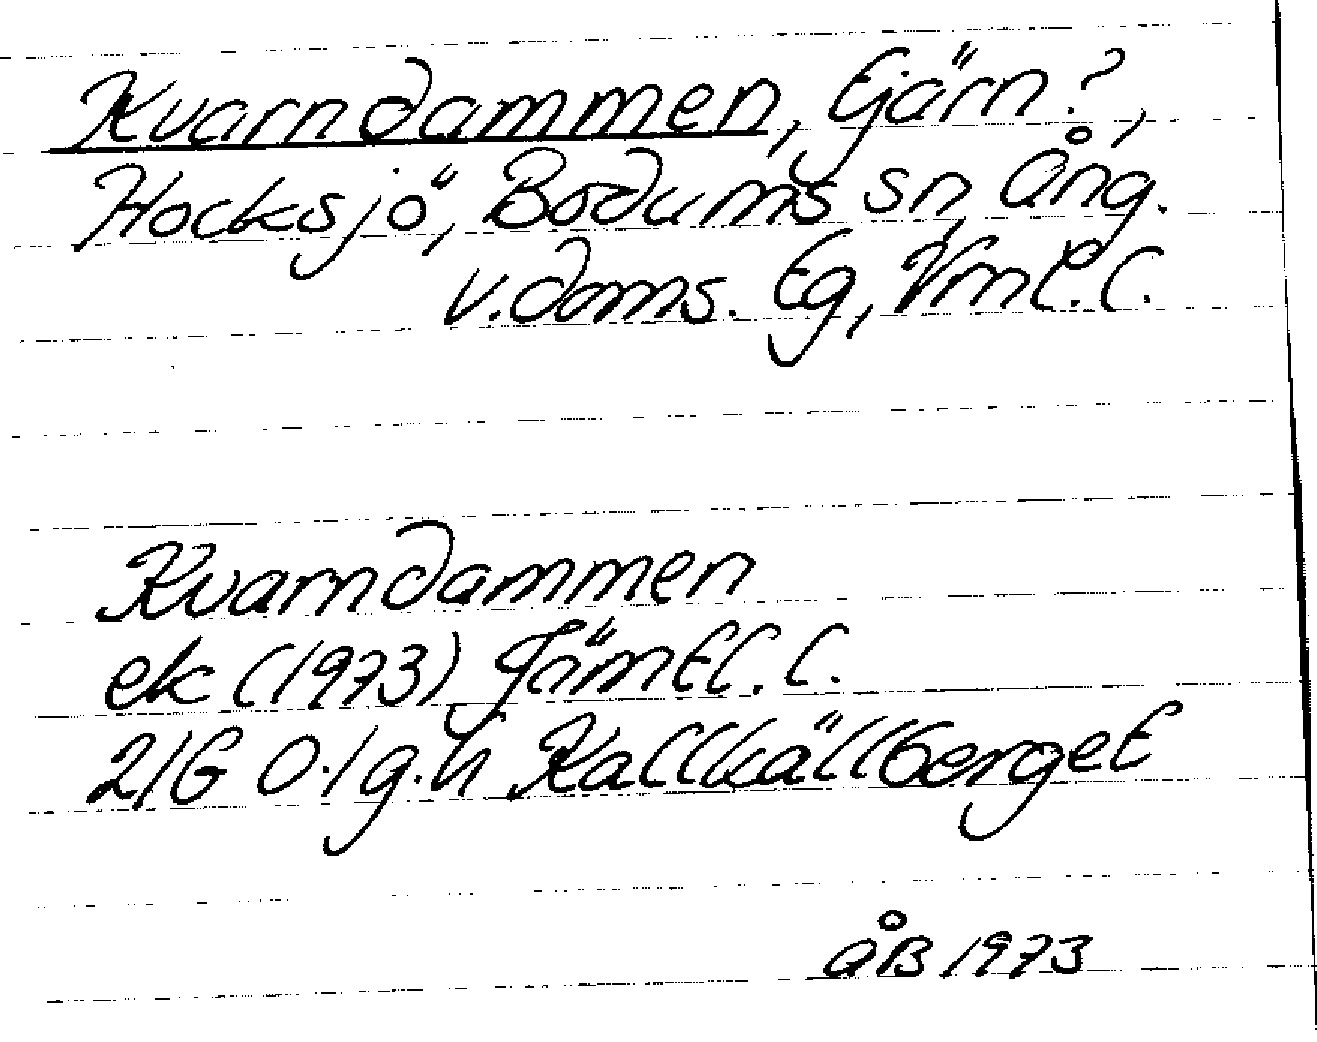 Kvarndammen, tjärn?,
Hocksjö, Bodums sn, Ång.
v.doms. Eg, Vrml.l.
Kvarndammen
ek (1973) Jämtl. l.
21G O./g.h Kallkällberget
ÅB 1973